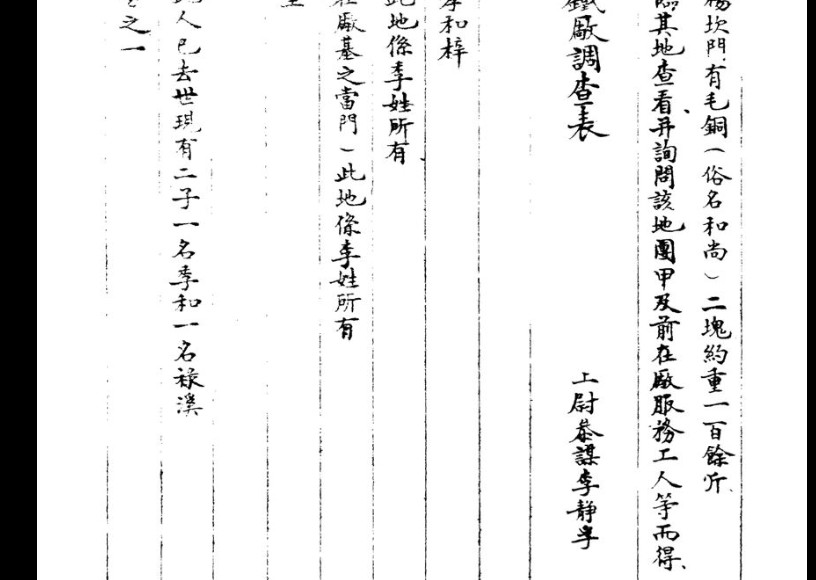 楊坎門有毛銅(俗名和尚)二塊約重一百餘斤、
臨其地查看、再詢問該地團甲及前在廠服務工人等而得、
鐵廠調查表
上尉叅謀李靜
李和梓
此地係李姓所有
在廠基之當門一此地係李姓所有
此人已去世現有二子一名李和一名祿溪
之一